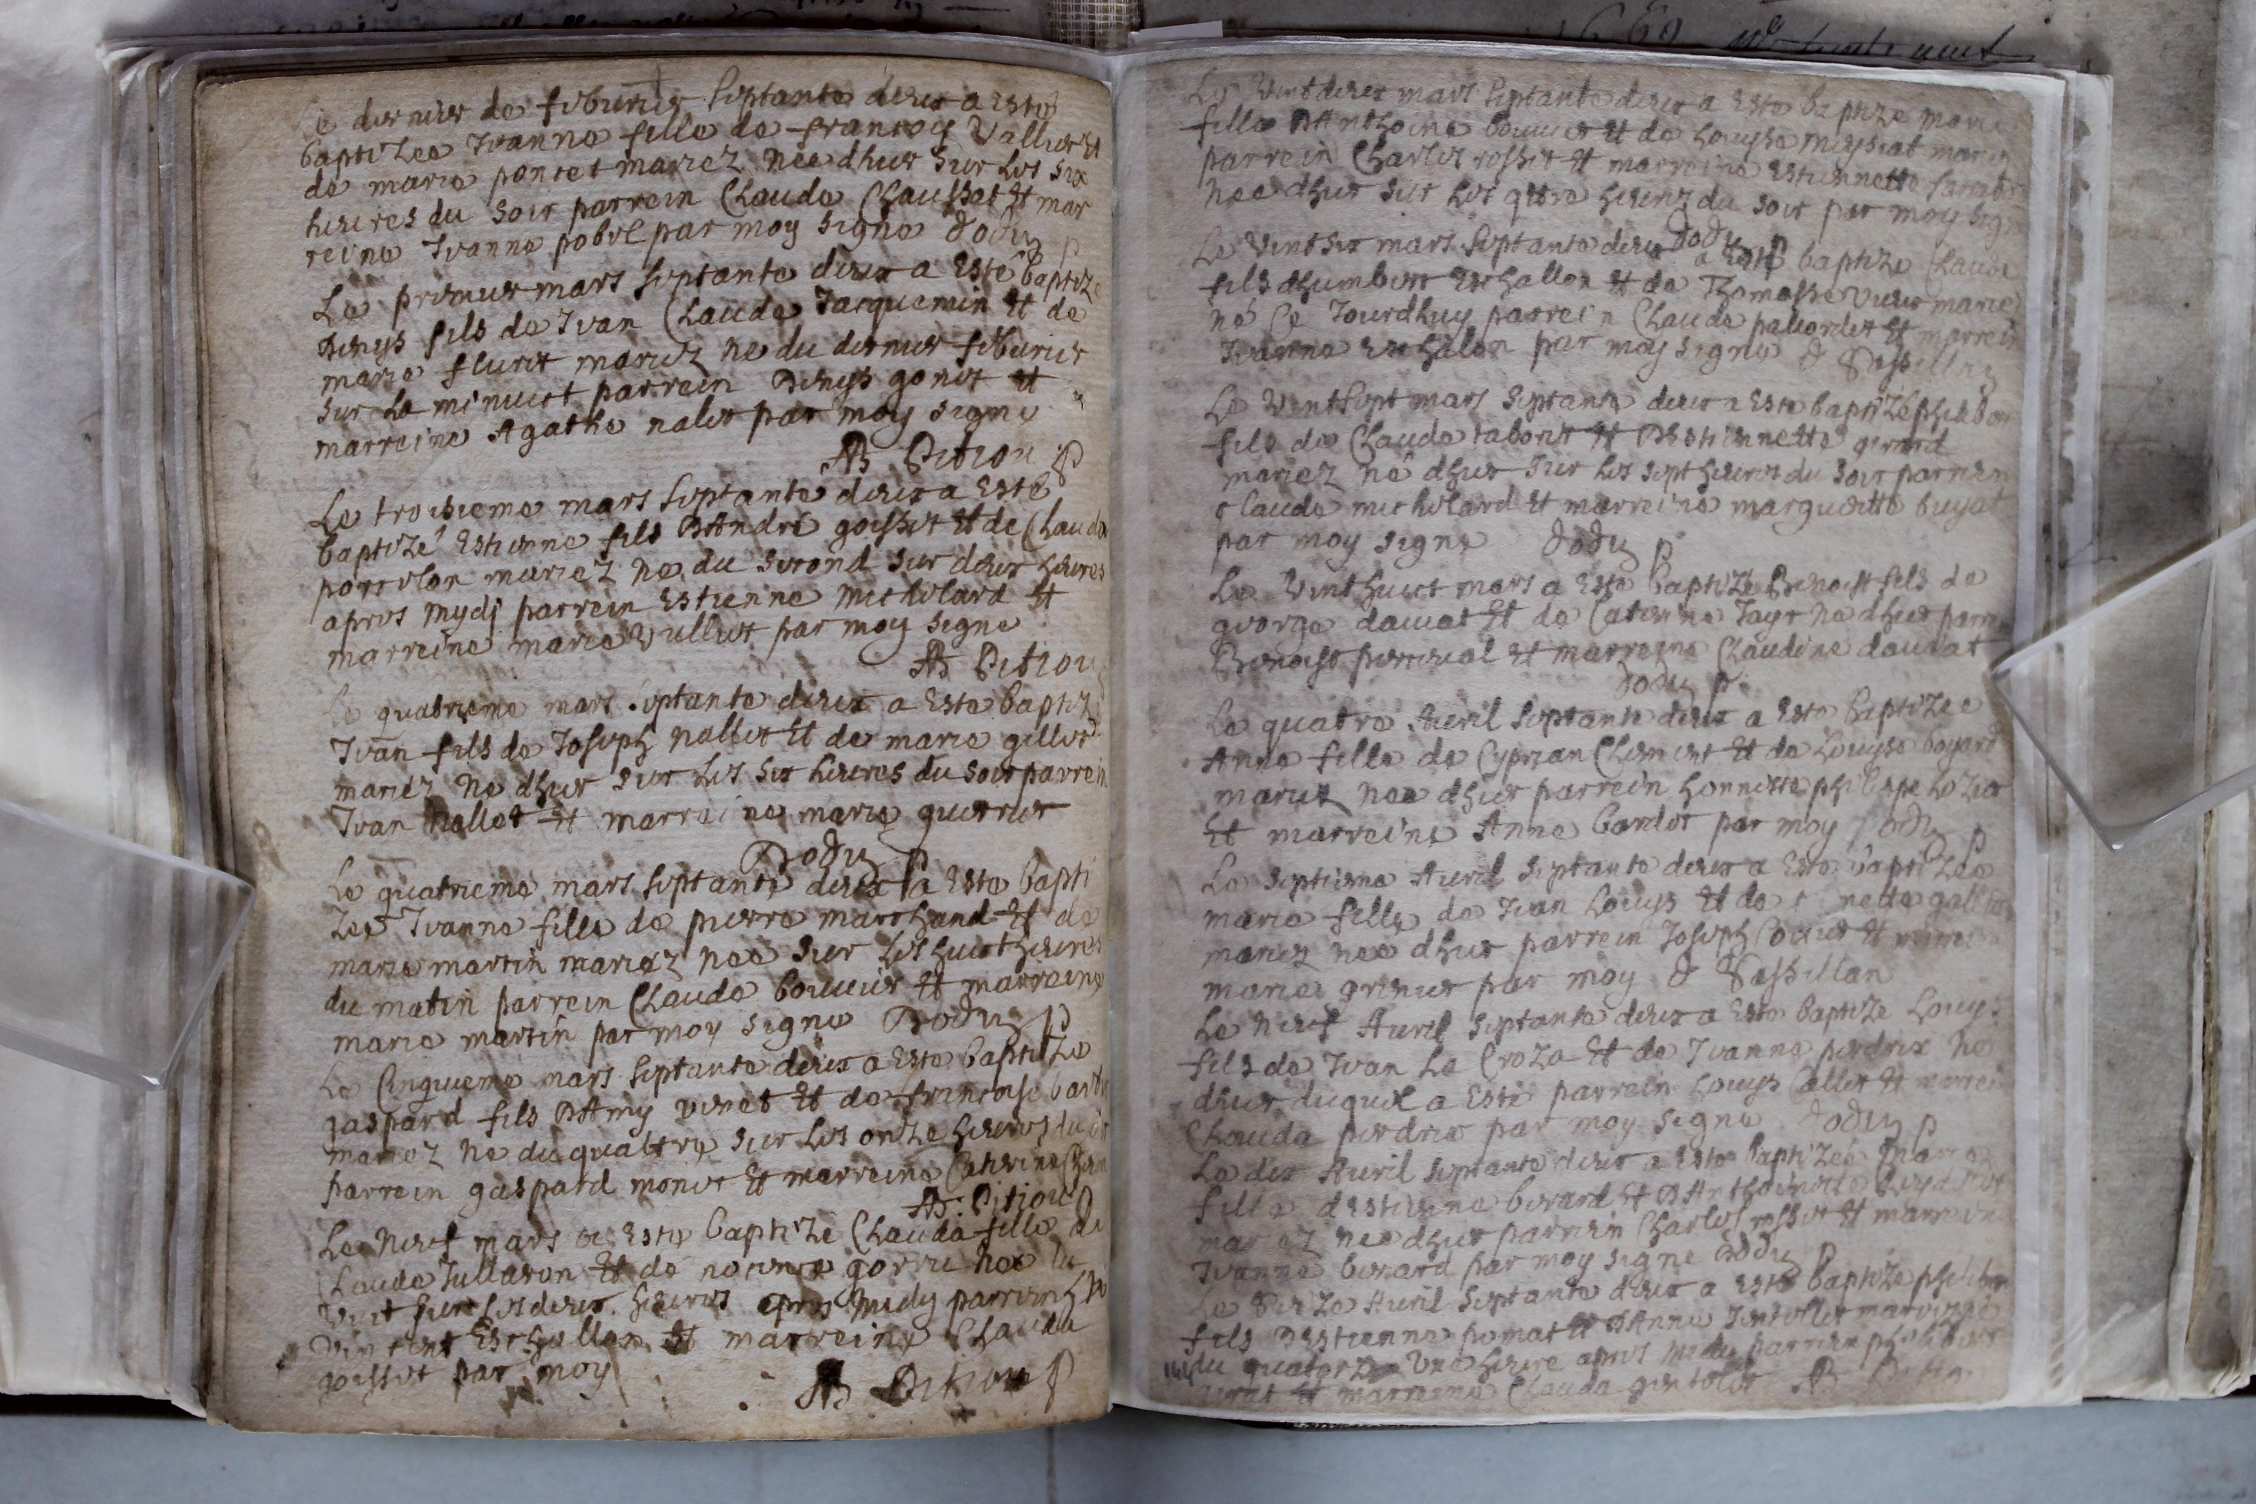 Le dernier de feburier septante deux a esté
baptizee Jeanne fille de francoys Vallier et
de marie poncet mariez nee dhier sur les six
heures du soir parrein Claude Chausset et mar
reine Jeanne pobel par moy signe Dodu p
Le premier mars septante deux a esté baptize
Denys fils de Jean Claude Jacquemin et de
marie fluret mariez ne du dernier feburier
sur le minuict parrein Denys gonet et
marreine Agathe nalet par moy signe
Pition p
Le troisieme mars septante deux a esté
baptizé Estienne fils DAndré goisset et de Claude
mariez ne du second sur deux heures
apres mydi parrein Estienne micholard et
marreine marie Vullet par moy signe
Pition
Le quatrieme mars septante deux a este baptizé
Jean fils de Joseph nallet et de marie gillet
mariez ne dhier sur les six heures du soir parrein
Jean Nallet et marreine marie guerrier
Dodu p
Le quatrieme mars septante deux a este bapti
zee Jeanne fille de pierre marchand et de
marie martin mariez nee sur les huict heures
du matin parrein Claude bouuier et marreine
marie martin par moy signe Dodu p
Le Cinquieme mars septante deux a este baptize
gaspard fils DAmy vinet et de francoise
mariez ne du quattre sur les onze heures du
parrein gaspard monet et marreine Catherine
Pition p
Le neuf mars a este baptizé Clauda fille de
Claude Jullaron et de gorru nee le
vint sur les deux heures apres midy parrein
Vincent Eschallon et marreine Clauda
goisset par moy
Pition p
Le Vintdeux mars septante deux a este baptize marie
fille DAnthoine bouuier et de Louyse meyssiat mariez
parrein Charles rosset et marreine Estiennette
nee dhier sur les qtre heures du soir par moy signe
Dodu p
Le Vintsix mars septante deux a esté baptize Claude
fils dhumbert Eschallon et de Thomasse mariez
né Ce Jourdhuy parrein Claude et marreine
Jeanne Eschalon par moy signe
Le Vintsept mars septante deux a este baptizé philibert
fils de Claude taboret et DEstiennette girard
mariez né dhier sur les sept heures du soir parrein
Claude micholard et marreine margueritte buyat
par moy signe Dodu p
Le Vinthuict mars a este baptizé Benoist fils de
george dauat et de Caterine Jayr ne dhier parrein
Benoist et marreine Claudine dauat
Dodu p
Le quatre Auril septante deux a este baptizee
Anne fille de Cyprian Clement et de Louyse boyard
mariez nee dhier parrein honneste philippe
et marreine Anne bordet par moy Dodu p
Le septieme Auril septante deux a esté baptizee
marie fille de Jean Louys et de
mariez nee dhier parrein Joseph et
marie grenier par moy
Le neuf Auril septante deux a este baptize Louys
fils de Jean La Croza et de Jeanne perdrix ne
dhier duquel a esté parrein Louys Callet et marreine
Clauda perdrix par moy signe Dodu p
Le dix Auril septante deux a este baptizeé marie
fille dEstienne berard et DAnthoinette
mariez nee dhier parrein Charles rosset et marreine
Jeanne berard par moy signe Dodu p
Le Seize Auril septante deux a esté baptize philibert
fils DEstienne pomat et DAnne mariez né
du quatorze Vne heure apres midy parrein philibert
et marreine Clauda